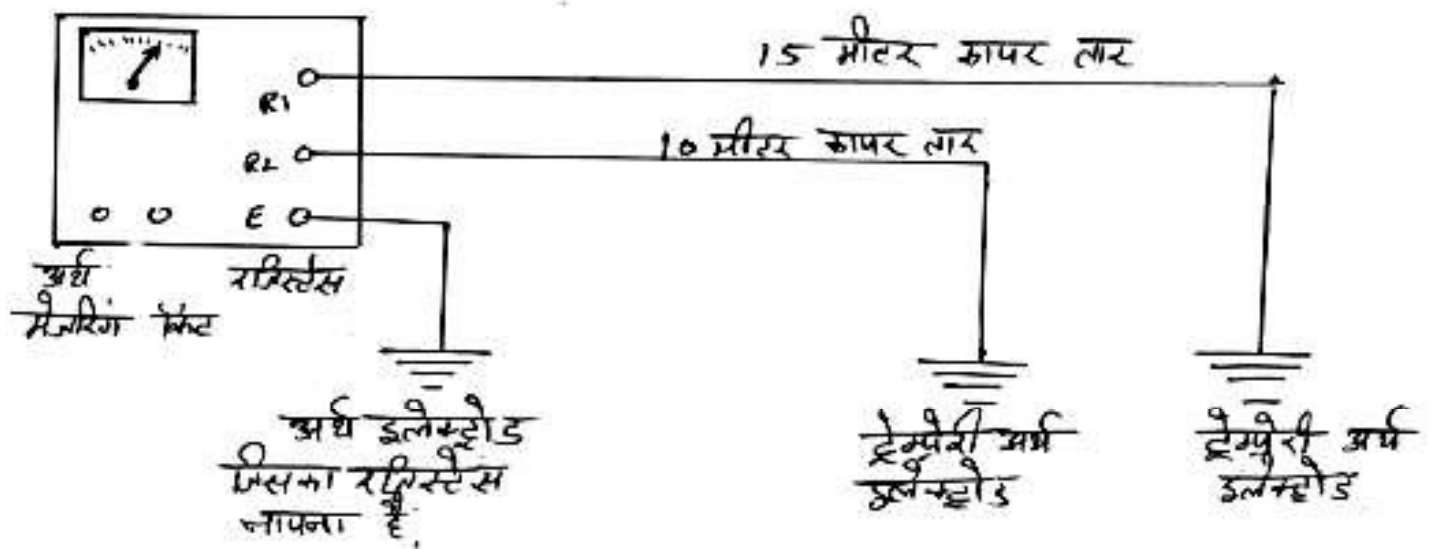 15 मीटर कापर तार
R1
10 मीटर कापर तार
R2
E
अर्थ रजिस्टेंस
मेजरिंग किट
अर्थ इलेक्ट्रोड
जिसका रजिस्टेंस
नापना है.
ट्रेम्पेरी अर्थ
इलेक्ट्रोड
ट्रेम्पेरी अर्थ
इलेक्ट्रोड